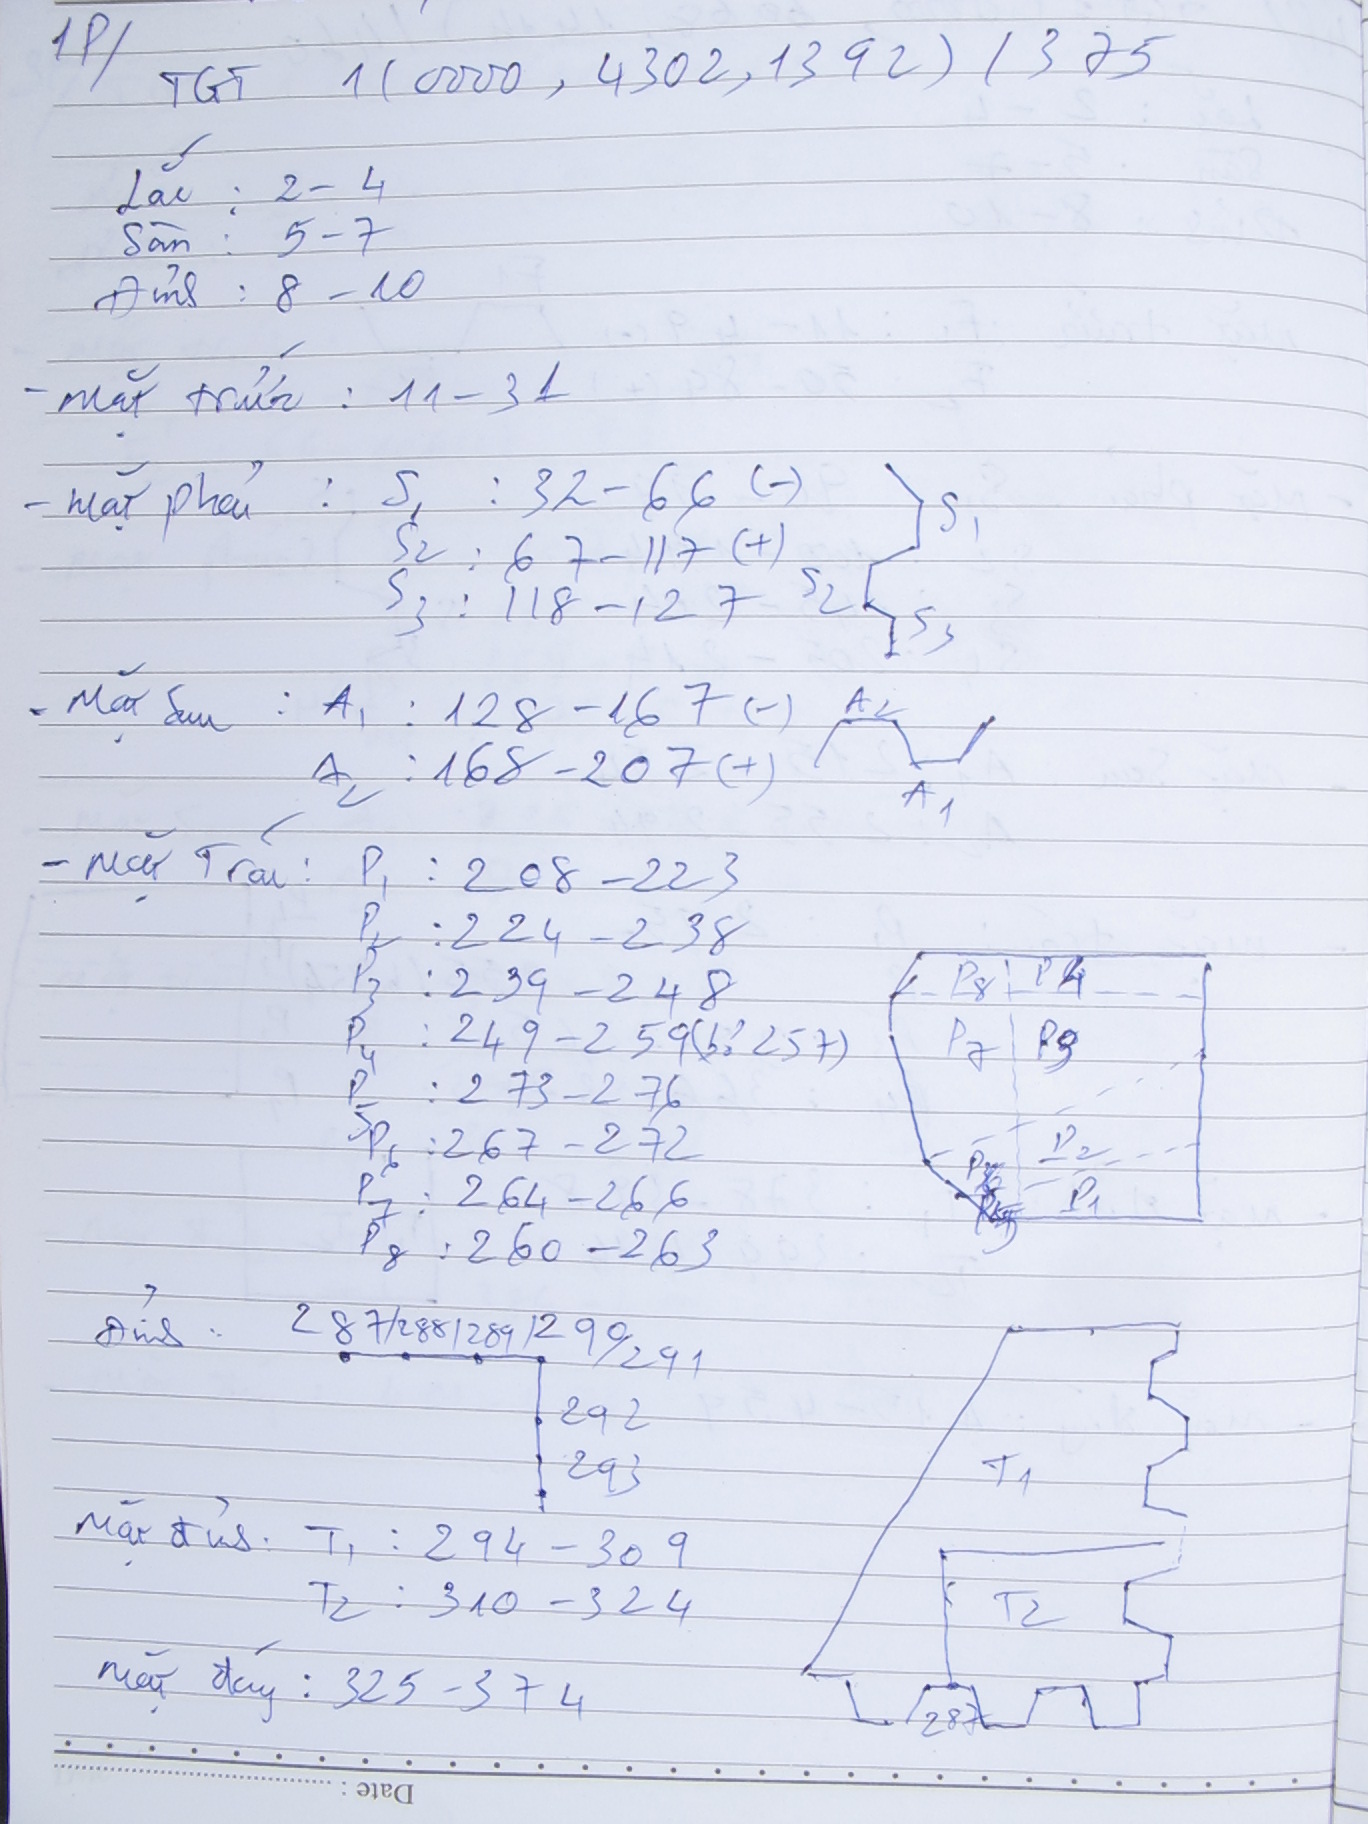 1P/
TGT 1(0000, 4302, 1392) / 375
Lắc : 2-4
Sàn : 5-7
Đỉnh : 8-10
- Mặt trước : 11-31
- Mặt phải : S1 : 32-66 (-)
S2 : 67-117 (+)
S3 : 118-127
S1
S2
S3
- Mặt Sau : A1 : 128-167 (-)
A2 : 168-207 (+)
A2
A1
- Mặt Trái : P1 : 208-223
P2 : 224-238
P3 : 239-248
P4 : 249-259 (bỏ 257)
P5 : 273-276
P6 : 267-272
P7 : 264-266
P8 : 260-263
P8 P4
P7 P3
P2
P1
Đỉnh : 287/288/289/290/291
292
293
Mặt đỉnh : T1 : 294-309
T2 : 310-324
T1
T2
287
Mặt đáy : 325-374
Date :